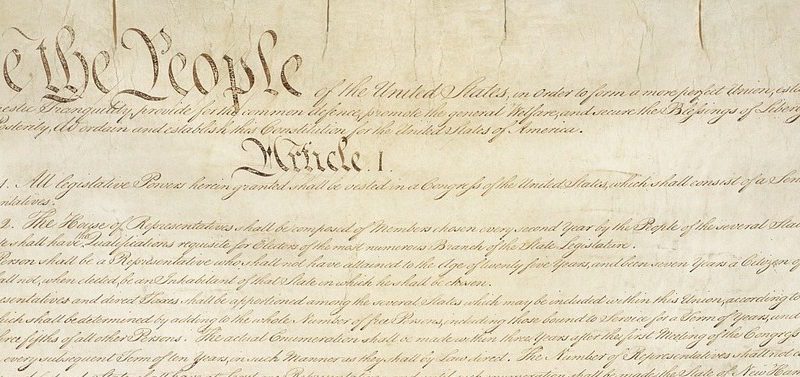 e the People of the United States, in Order to form a more perfect Union, esta
mestic Tranquility, provide for the common defence, promote the general Welfare, and secure the Blessings of Libert
Posterity, do ordain and establish this Constitution for the United States of America.
Article. I.
1. All legislative Powers herein granted shall be vested in a Congress of the United States, which shall consist of a Sen
entatives.
2. The House of Representatives shall be composed of Members chosen every second Year by the People of the several Stat
te shall have the Qualifications requisite for Electors of the most numerous Branch of the State Legislature.
Person shall be a Representative who shall not have attained to the Age of twenty five Years, and been seven Years a Citizen of
all not, when elected, be an Inhabitant of that State in which he shall be chosen.
esentatives and direct Taxes shall be apportioned among the several States which may be included within this Union, according to
hich shall be determined by adding to the whole Number of free Persons, including those bound to Service for a Term of Years, and
hree fifths of all other Persons. The actual Enumeration shall be made within three Years after the first Meeting of the Congress
every subsequent Term of ten Years, in such Manner as they shall by Law direct. The Number of Representatives shall not e
made, the State of New Ham